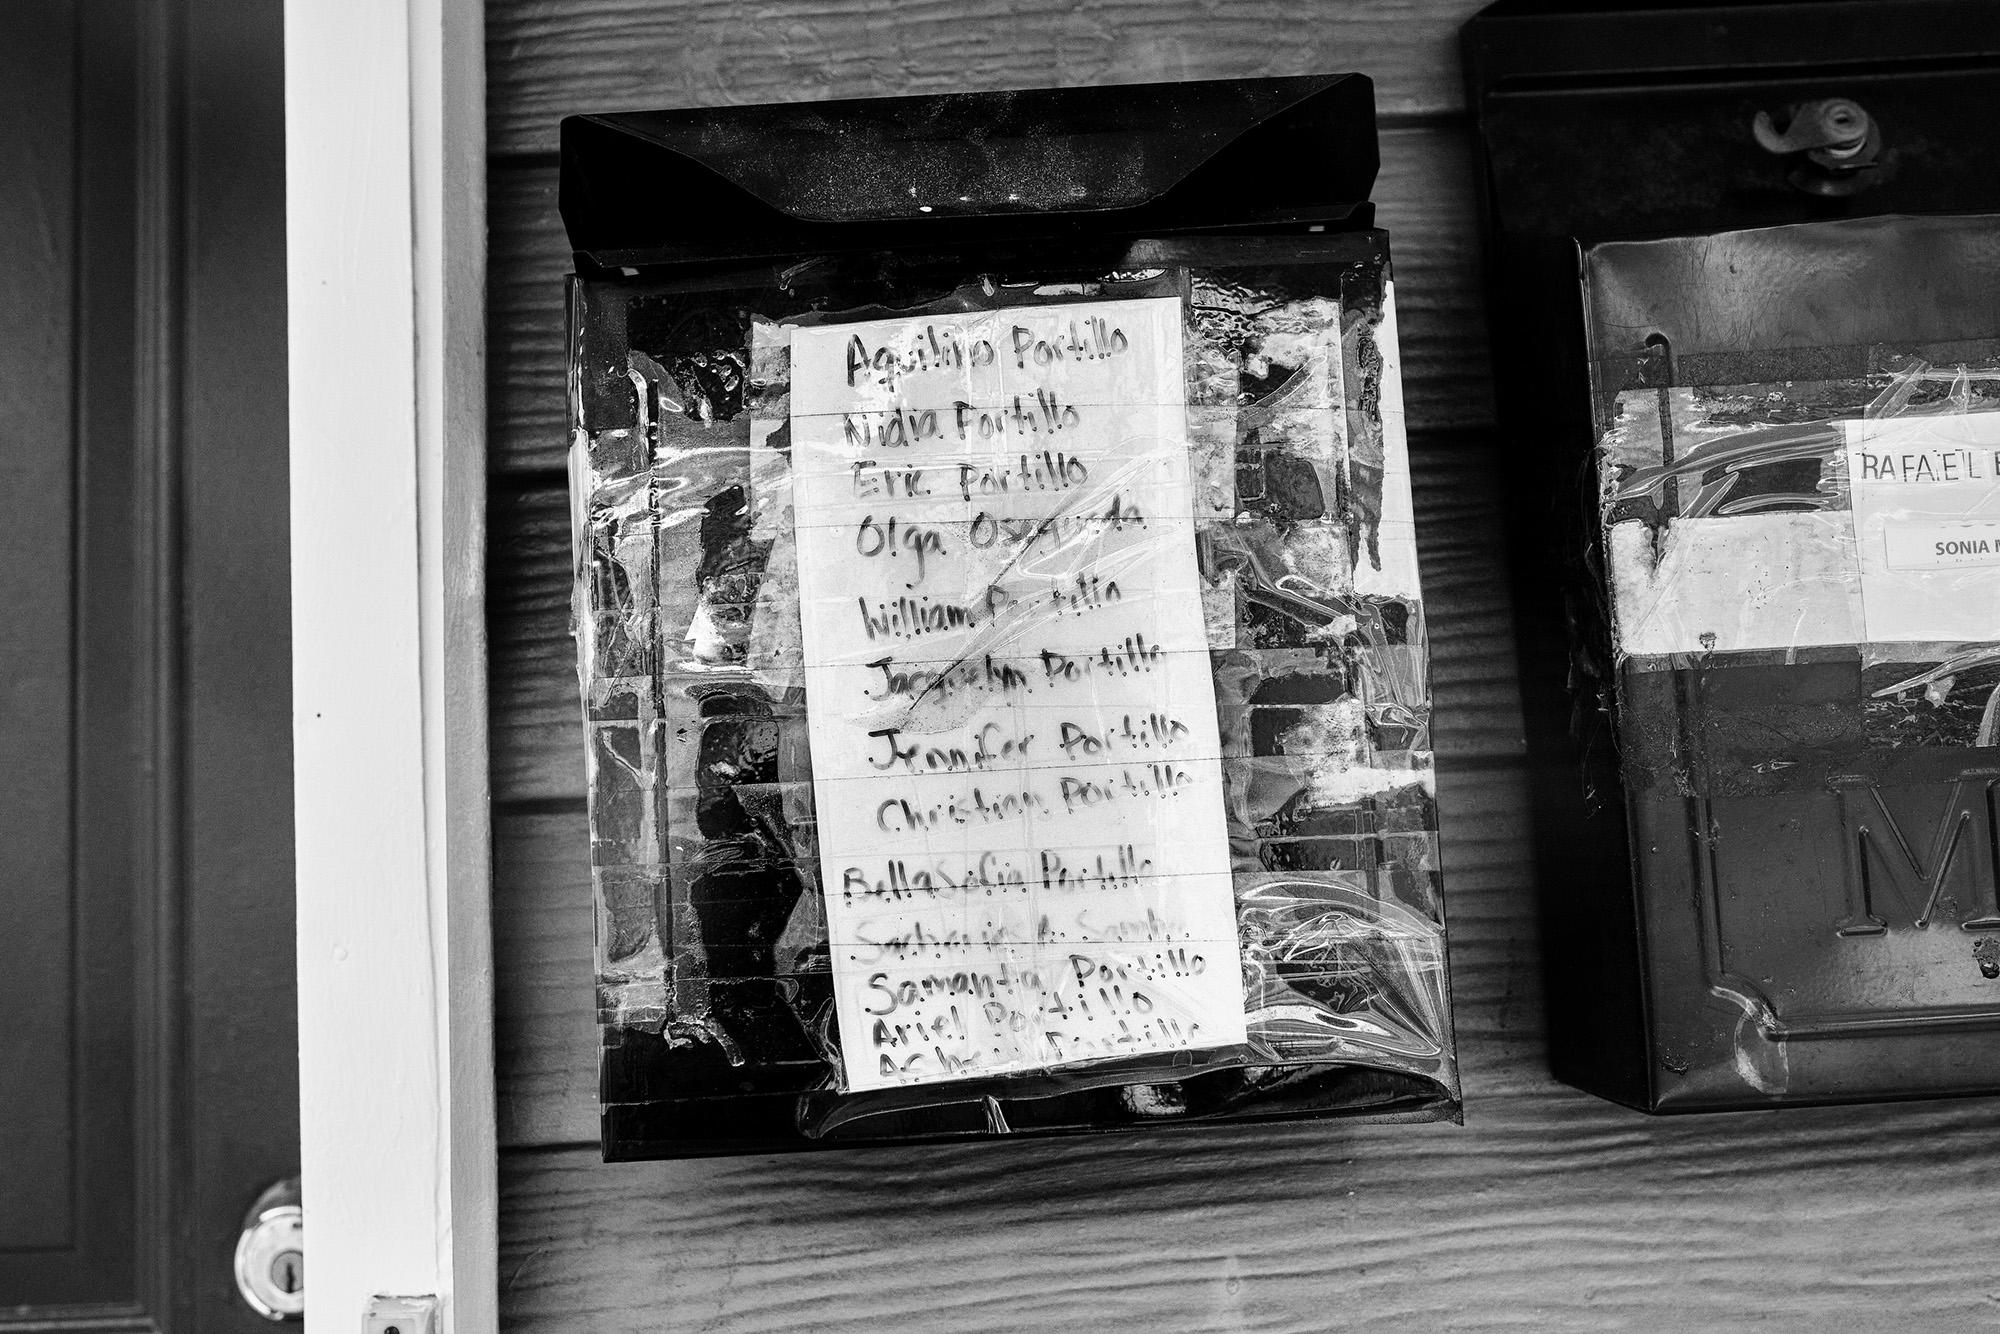 Aquilino Portillo
Nidia Portillo
Eric Portillo
Olga Osegueda
William Portillo
Jacquelyn Portillo
Jennifer Portillo
Christian Portillo
Bella Sofia Portillo
Samantha Portillo
Ariel Portillo
Portillo
RAFAEL
SONIA
M